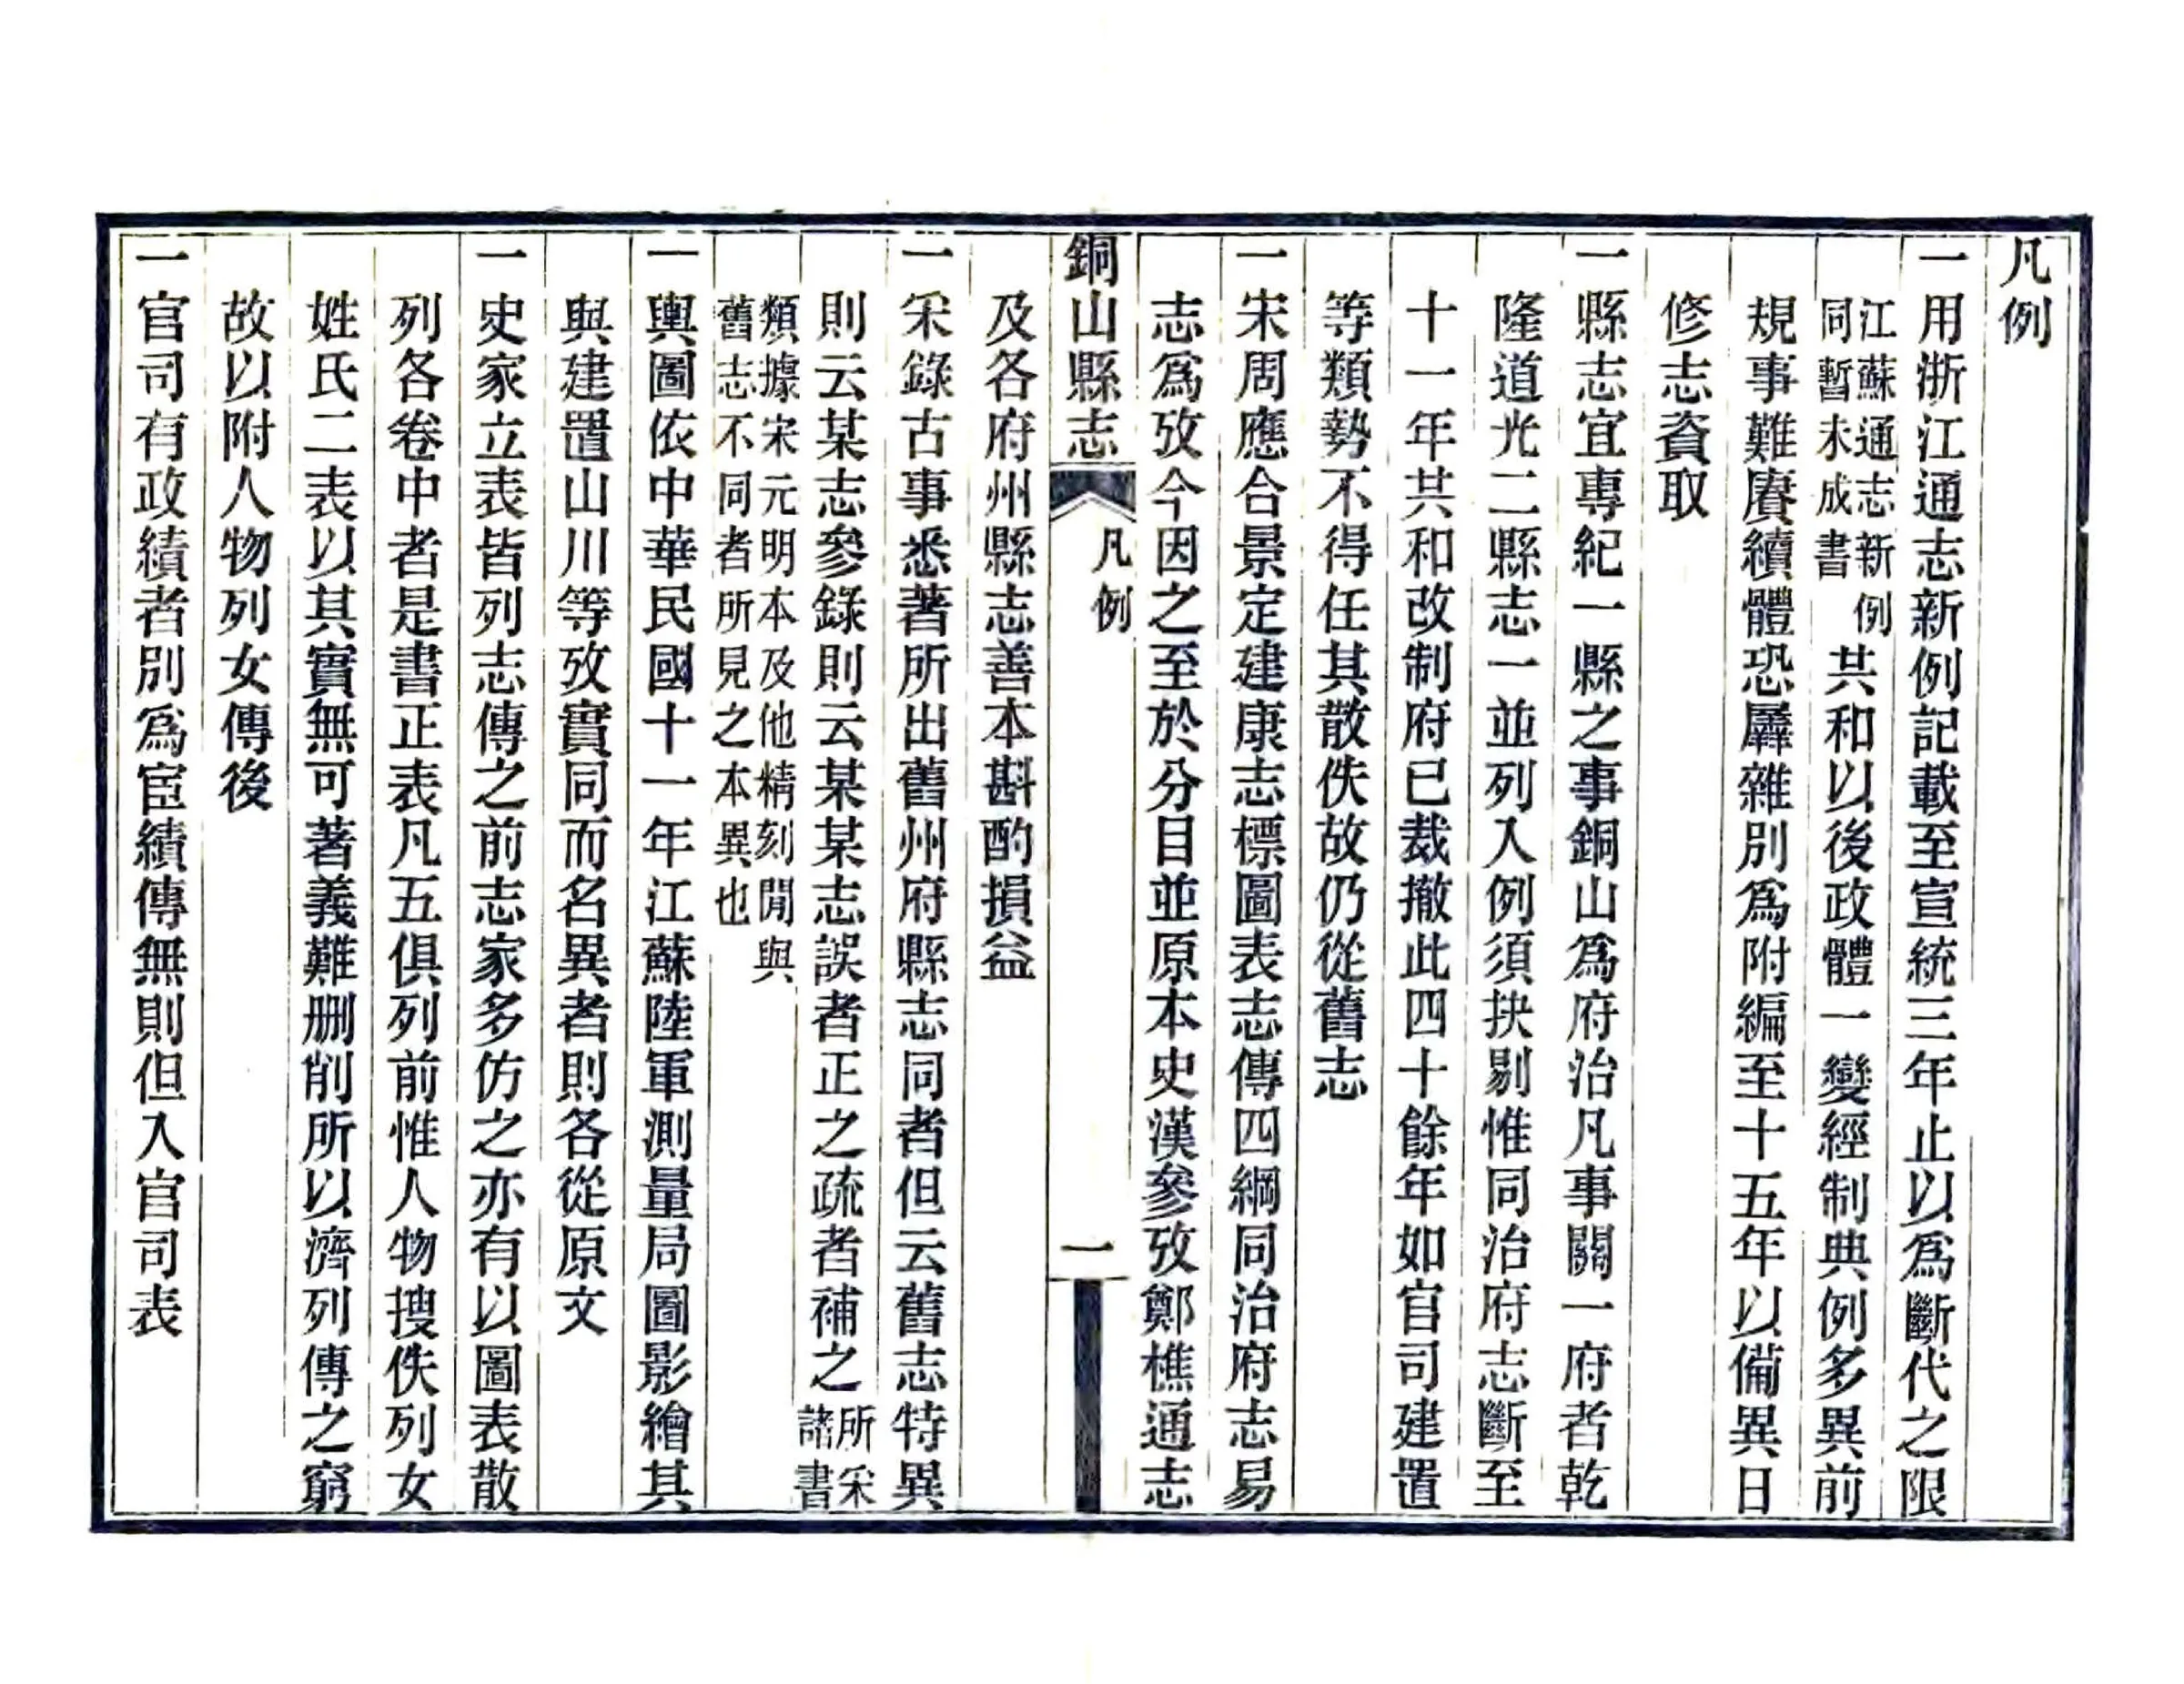 凡例
一用浙江通志新例記載至宣統三年止以爲斷代之限
江蘇通志新例
同暫未成書
共和以後政體一變經制典例多異前
規事難賡續體恐厖雜別爲附編至十五年以備異日
修志資取
一縣志宜專紀一縣之事銅山爲府治凡事關一府者乾
隆道光二縣志一並列入例須抉剔惟同治府志斷至
十一年共和改制府已裁撤此四十餘年如官司建置
等類勢不得任其散佚故仍從舊志
一宋周應合景定建康志標圖表志傳四綱同治府志易
志爲攷今因之至於分目並原本史漢參攷鄭樵通志
銅山縣志
凡例
一
及各府州縣志善本斟酌損益
一采錄古事悉著所出舊州府縣志同者但云舊志特異
則云某志參錄則云某某志誤者正之疏者補之
所采諸書
類據宋元明本及他精刻閒與
舊志不同者所見之本異也
一輿圖依中華民國十一年江蘇陸軍測量局圖影繪其
與建置山川等攷實同而名異者則各從原文
一史家立表皆列志傳之前志家多仿之亦有以圖表散
列各卷中者是書正表凡五俱列前惟人物搜佚列女
姓氏二表以其實無可著義難删削所以濟列傳之窮
故以附人物列女傳後
一官司有政績者別爲宦績傳無則但入官司表